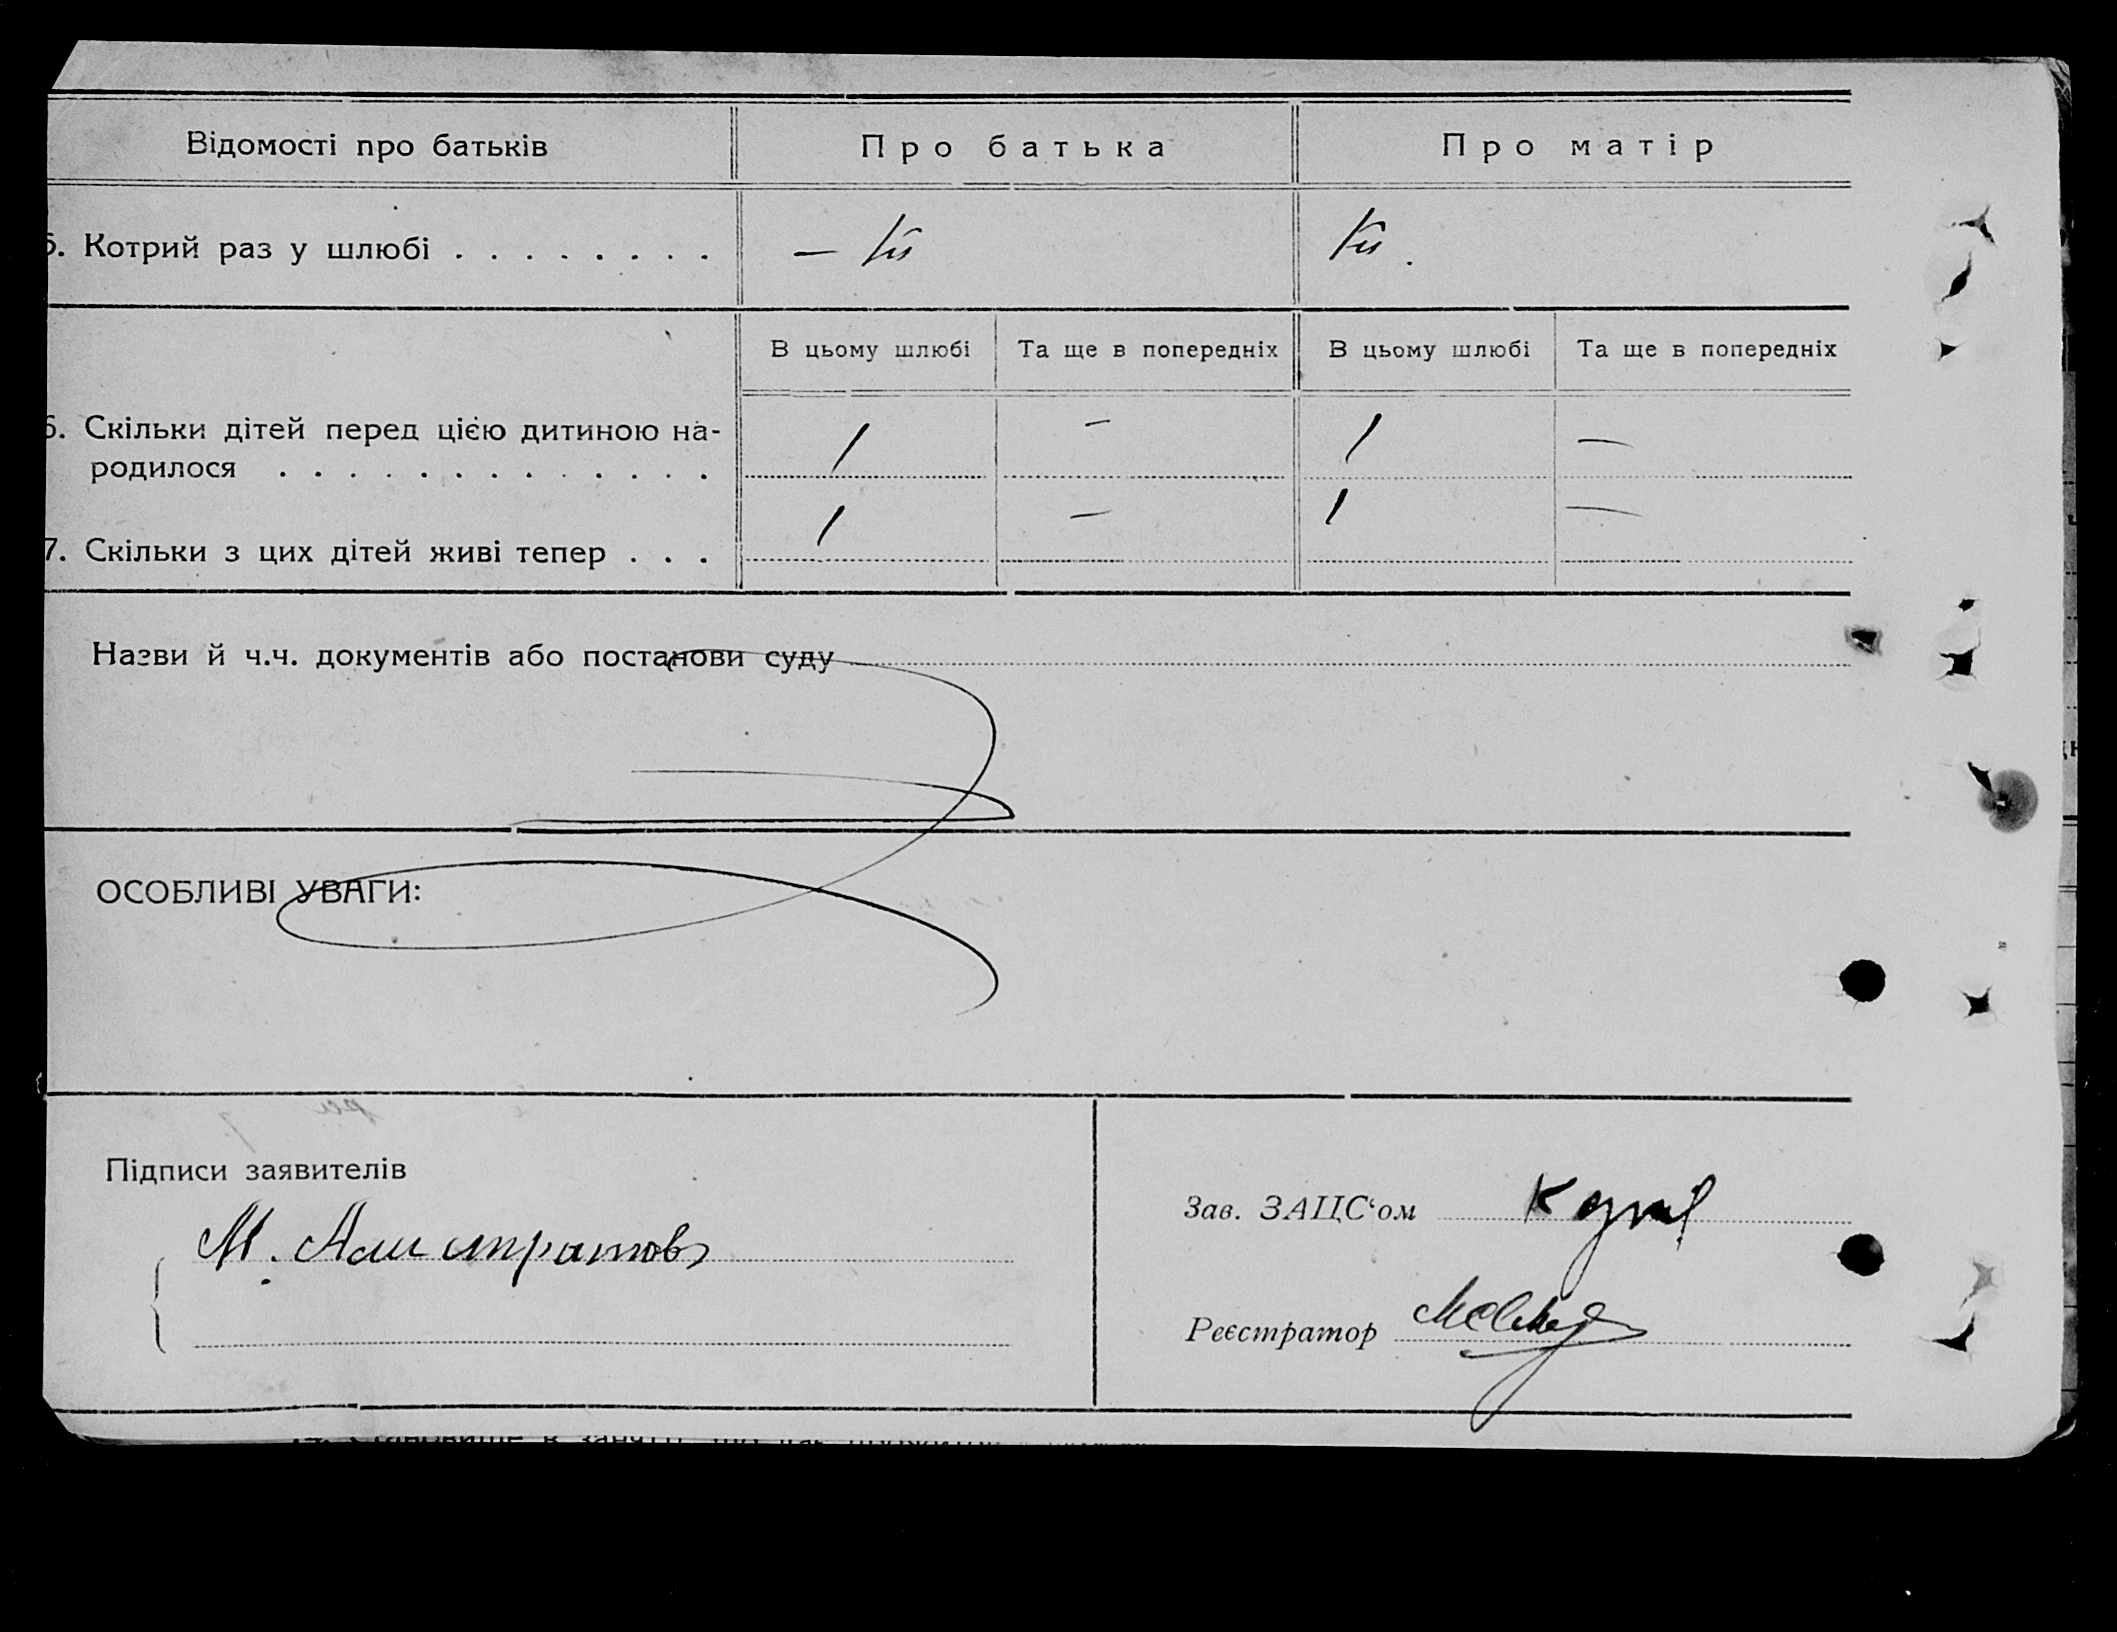 Відомості про батьків
Про батька
Про матір
5. Котрий раз у шлюбі . . . . . . . .
—
В цьому шлюбі
Та ще в попередніх
В цьому шлюбі
Та ще в попередніх
6. Скільки дітей перед цією дитиною на-
родилося . . . . . . . . . . . . .
1 — 1 —
7. Скільки з цих дітей живі тепер . . .
1 — 1 —
Назви й ч.ч. документів або постанови суду
ОСОБЛИВІ УВАГИ:
Підписи заявителів
М.
Зав. ЗАЦС‘ом
Реєстратор